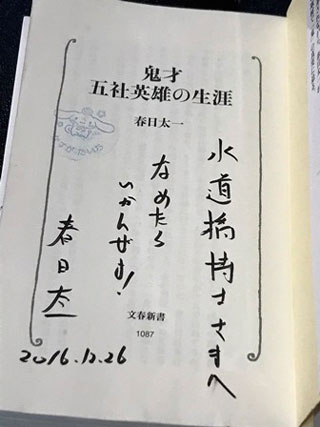 鬼才
五社英雄の生涯
春日太一
水道橋博士さまへ
なめたら
いかんぜよ!
春日太一
2016.12.26
文春新書
1087